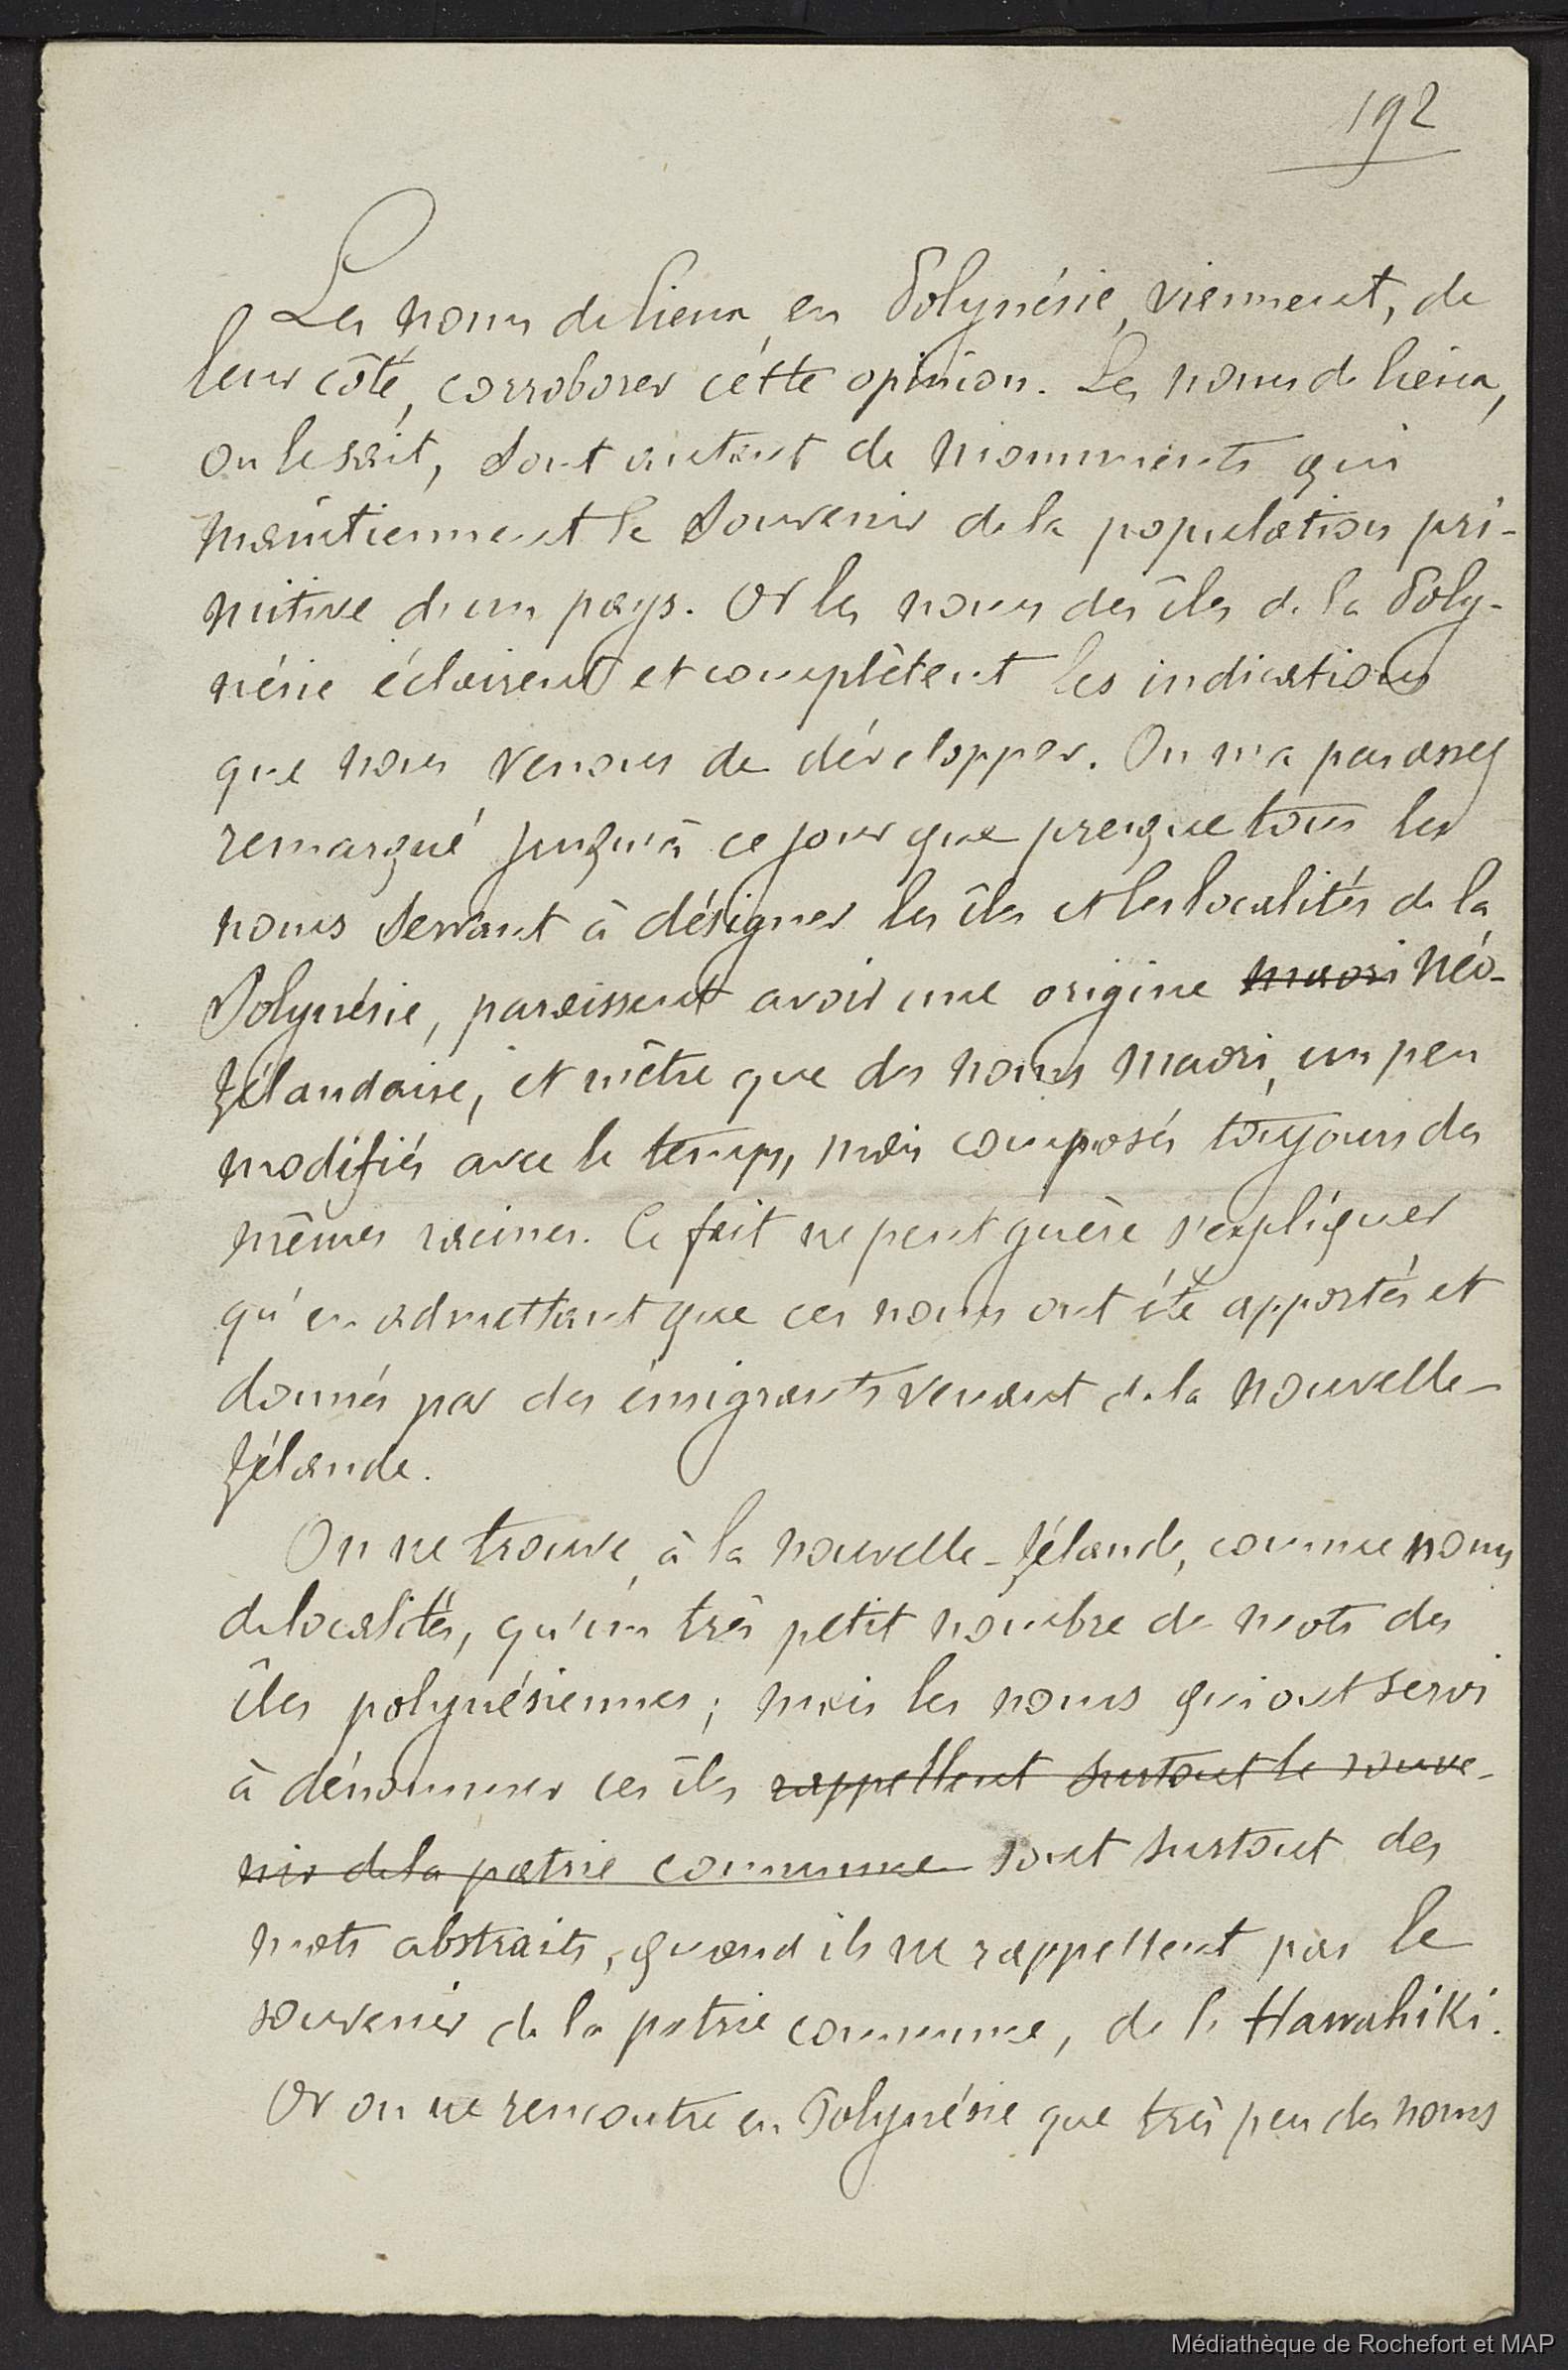 192
Les noms de lieux, en Polynésie, viennent, de
leur côté, corroborer cette opinion. Les noms de lieux,
on le sait, sont autant de monuments qui
maintiennent le souvenir de la population pri-
mitive d'un pays. Or les noms des îles de la Poly-
nésie éclairent et complètent les indications
que nous venons de développer. On n'a pas assez
remarqué jusqu'à ce jour que presque tous les
noms servant à désigner les îles et les localités de la
Polynésie, paraissent avoir une origine maori néo-
zélandaise, et n'être que des noms maori, un peu
modifiés avec le temps, mais composés toujours des
mêmes racines. Ce fait ne peut guère s'expliquer
qu'en admettant que ces noms ont été apportés et
donnés par des émigrants venant de la Nouvelle-
Zélande.
On ne trouve, à la Nouvelle-Zélande, comme noms
de localités, qu'un très petit nombre de mots des
îles polynésiennes; mais les noms qui ont servi
à dénommer ces îles rappellent surtout le souve-
nir de la patrie commune sont surtout des
mots abstraits, quand ils ne rappellent pas le
souvenir de la patrie commune, de l' Hawahiki.
Or on ne rencontre en Polynésie que très peu des noms
Médiathèque de Rochefort et MAP